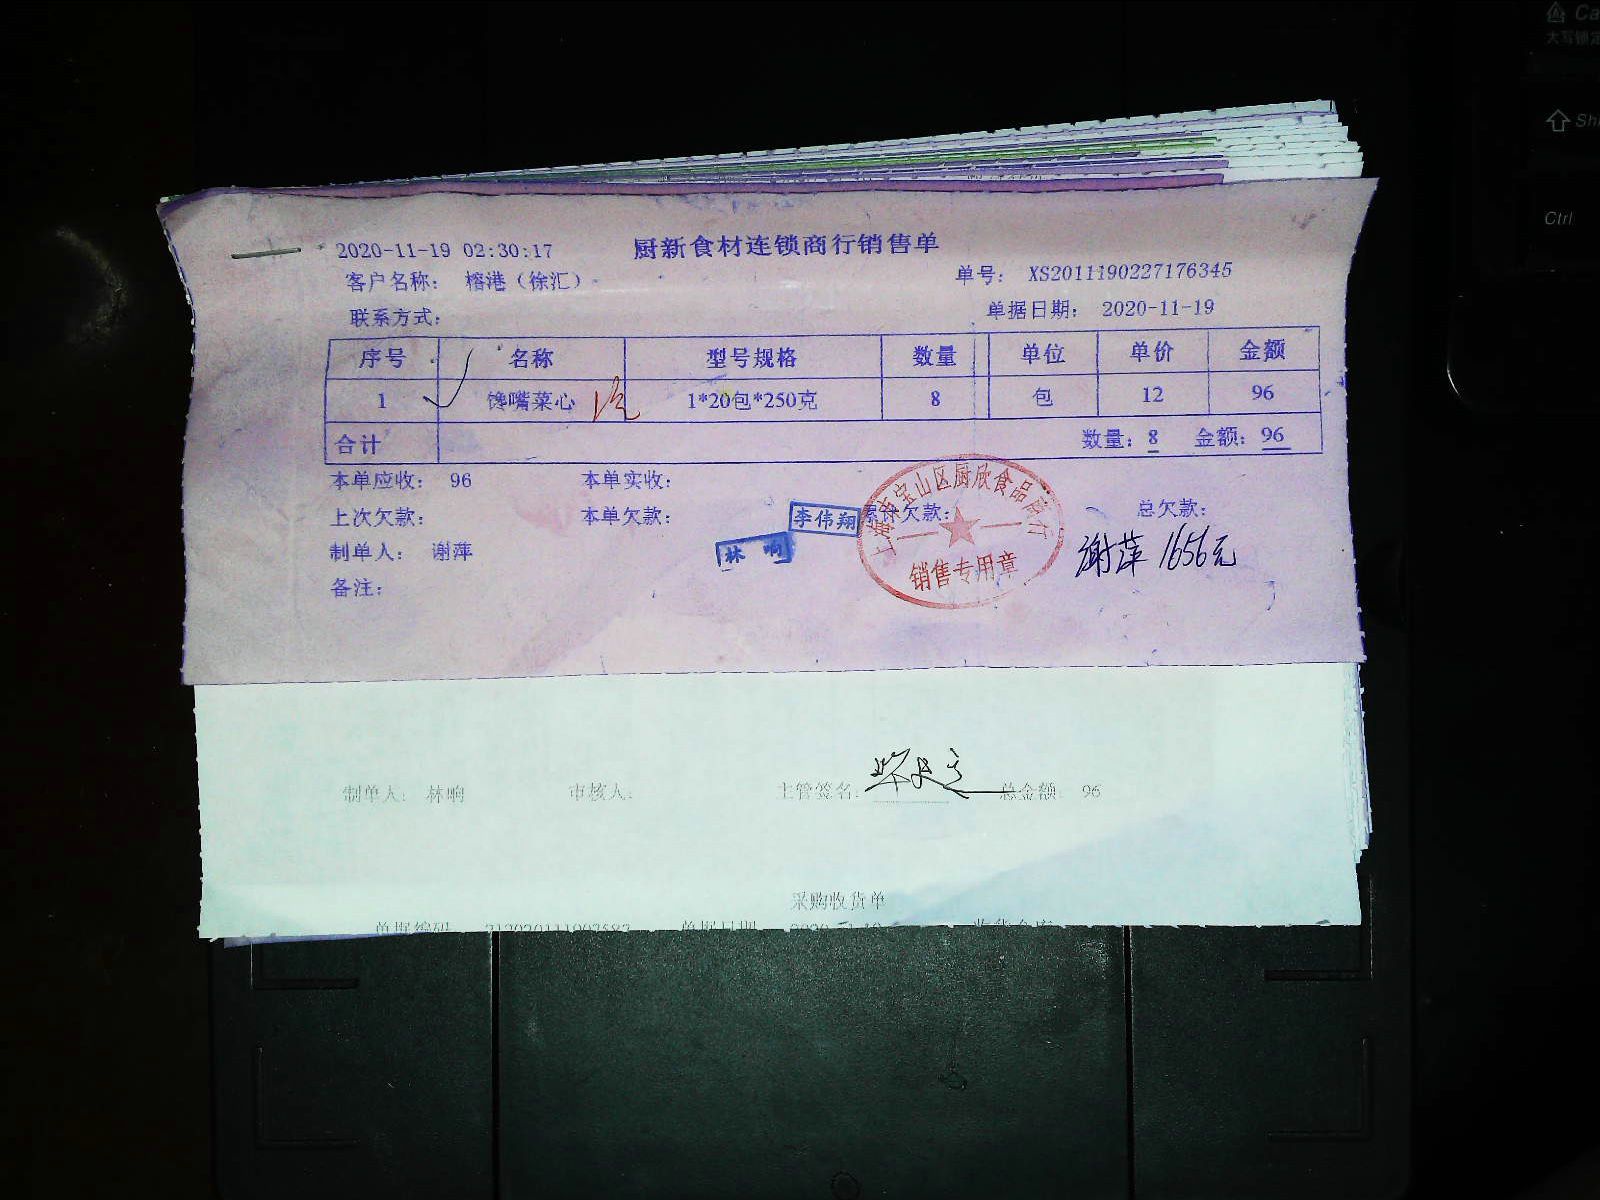 2020-11-19 02:30:17 厨新食材连锁商行销售单
客户名称: 榕港(徐汇) 单号: XS2011190227176345
联系方式: 单据日期: 2020-11-19
序号 名称 型号规格 数量 单位 单价 金额
1 馋嘴菜心 1*20包*250克 8 包 12 96
合计 数量: 8 金额: 96
本单应收: 96 本单实收:
上次欠款: 本单欠款: 累计欠款: 总欠款:
制单人: 谢萍
备注:
李伟翔
林响
上海市宝山区厨欣食品商行
销售专用章
谢萍 1656元
制单人: 林响 审核人: 主管签名: 总金额: 96
采购收货单
单据编码 单据日期 收货仓库
大写锁定
Ctrl